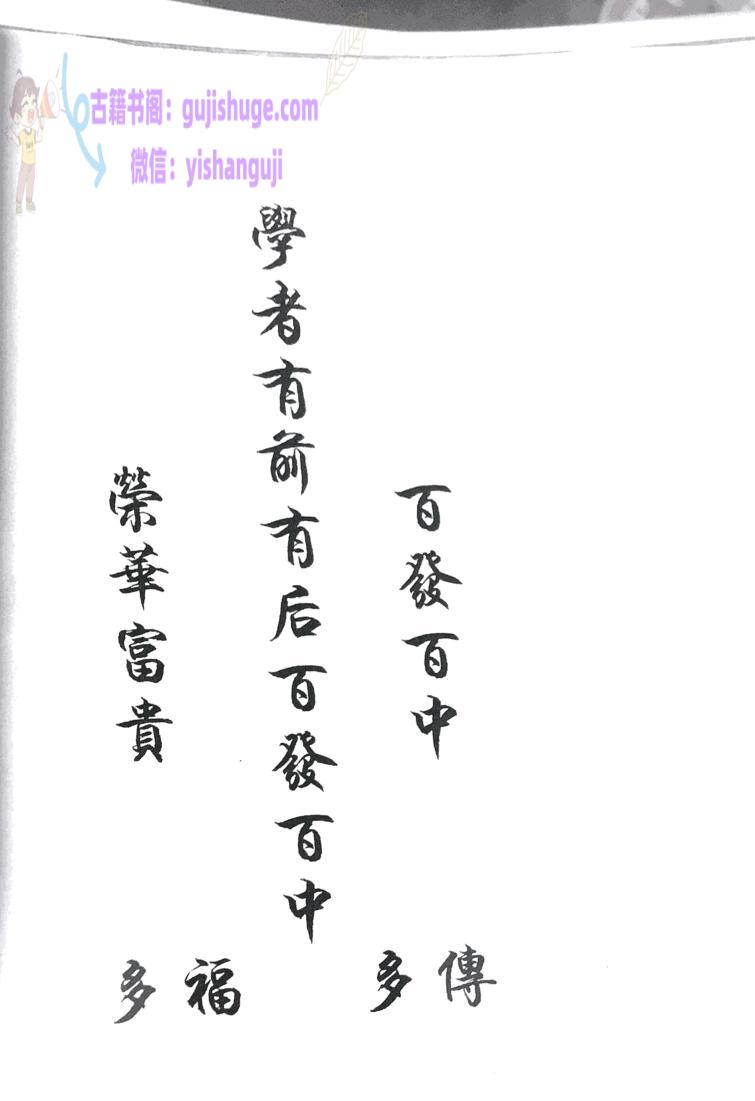 古籍书阁：gujishuge.com
微信：yishanguji
百發百中
學者有前有后百發百中
榮華富貴
多傳
多福